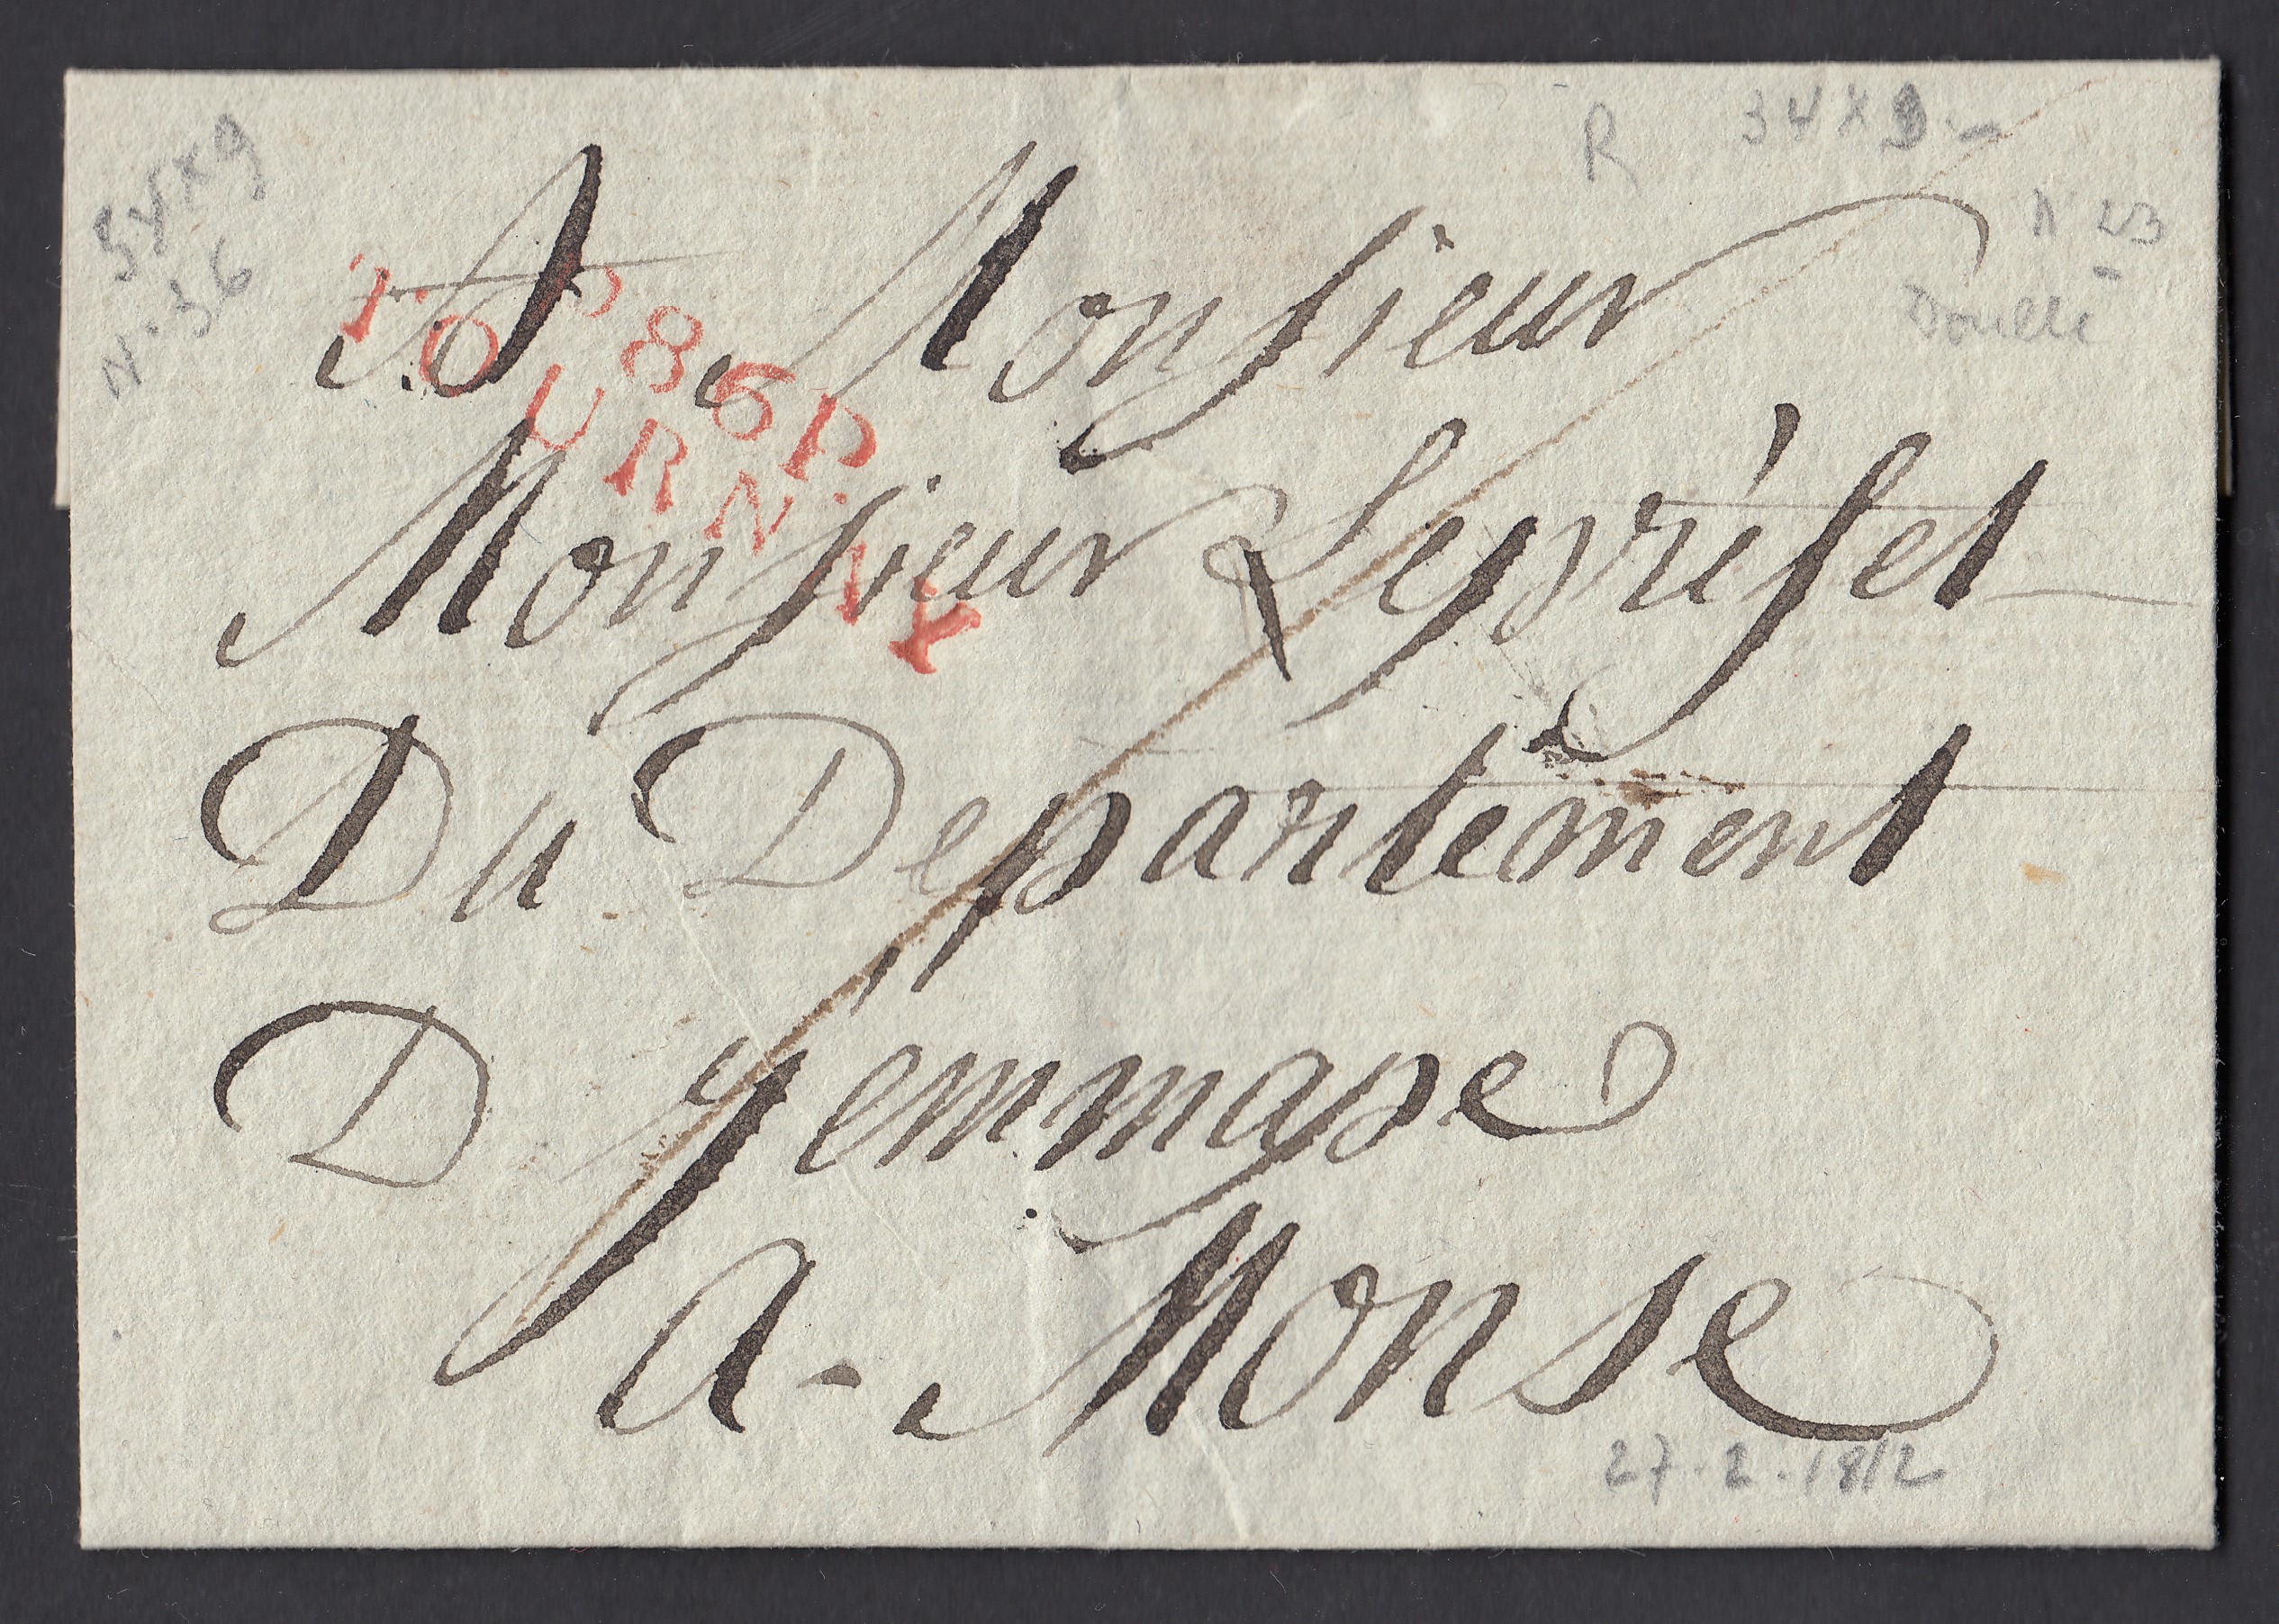 54x9
N° 36
R 34x9-
N 23
Douelle
P86P.
TOURNAY
A Monsieur
Monsieur Le préfet
Du Departement
D Jemmape
a - Monse
27.2.1812